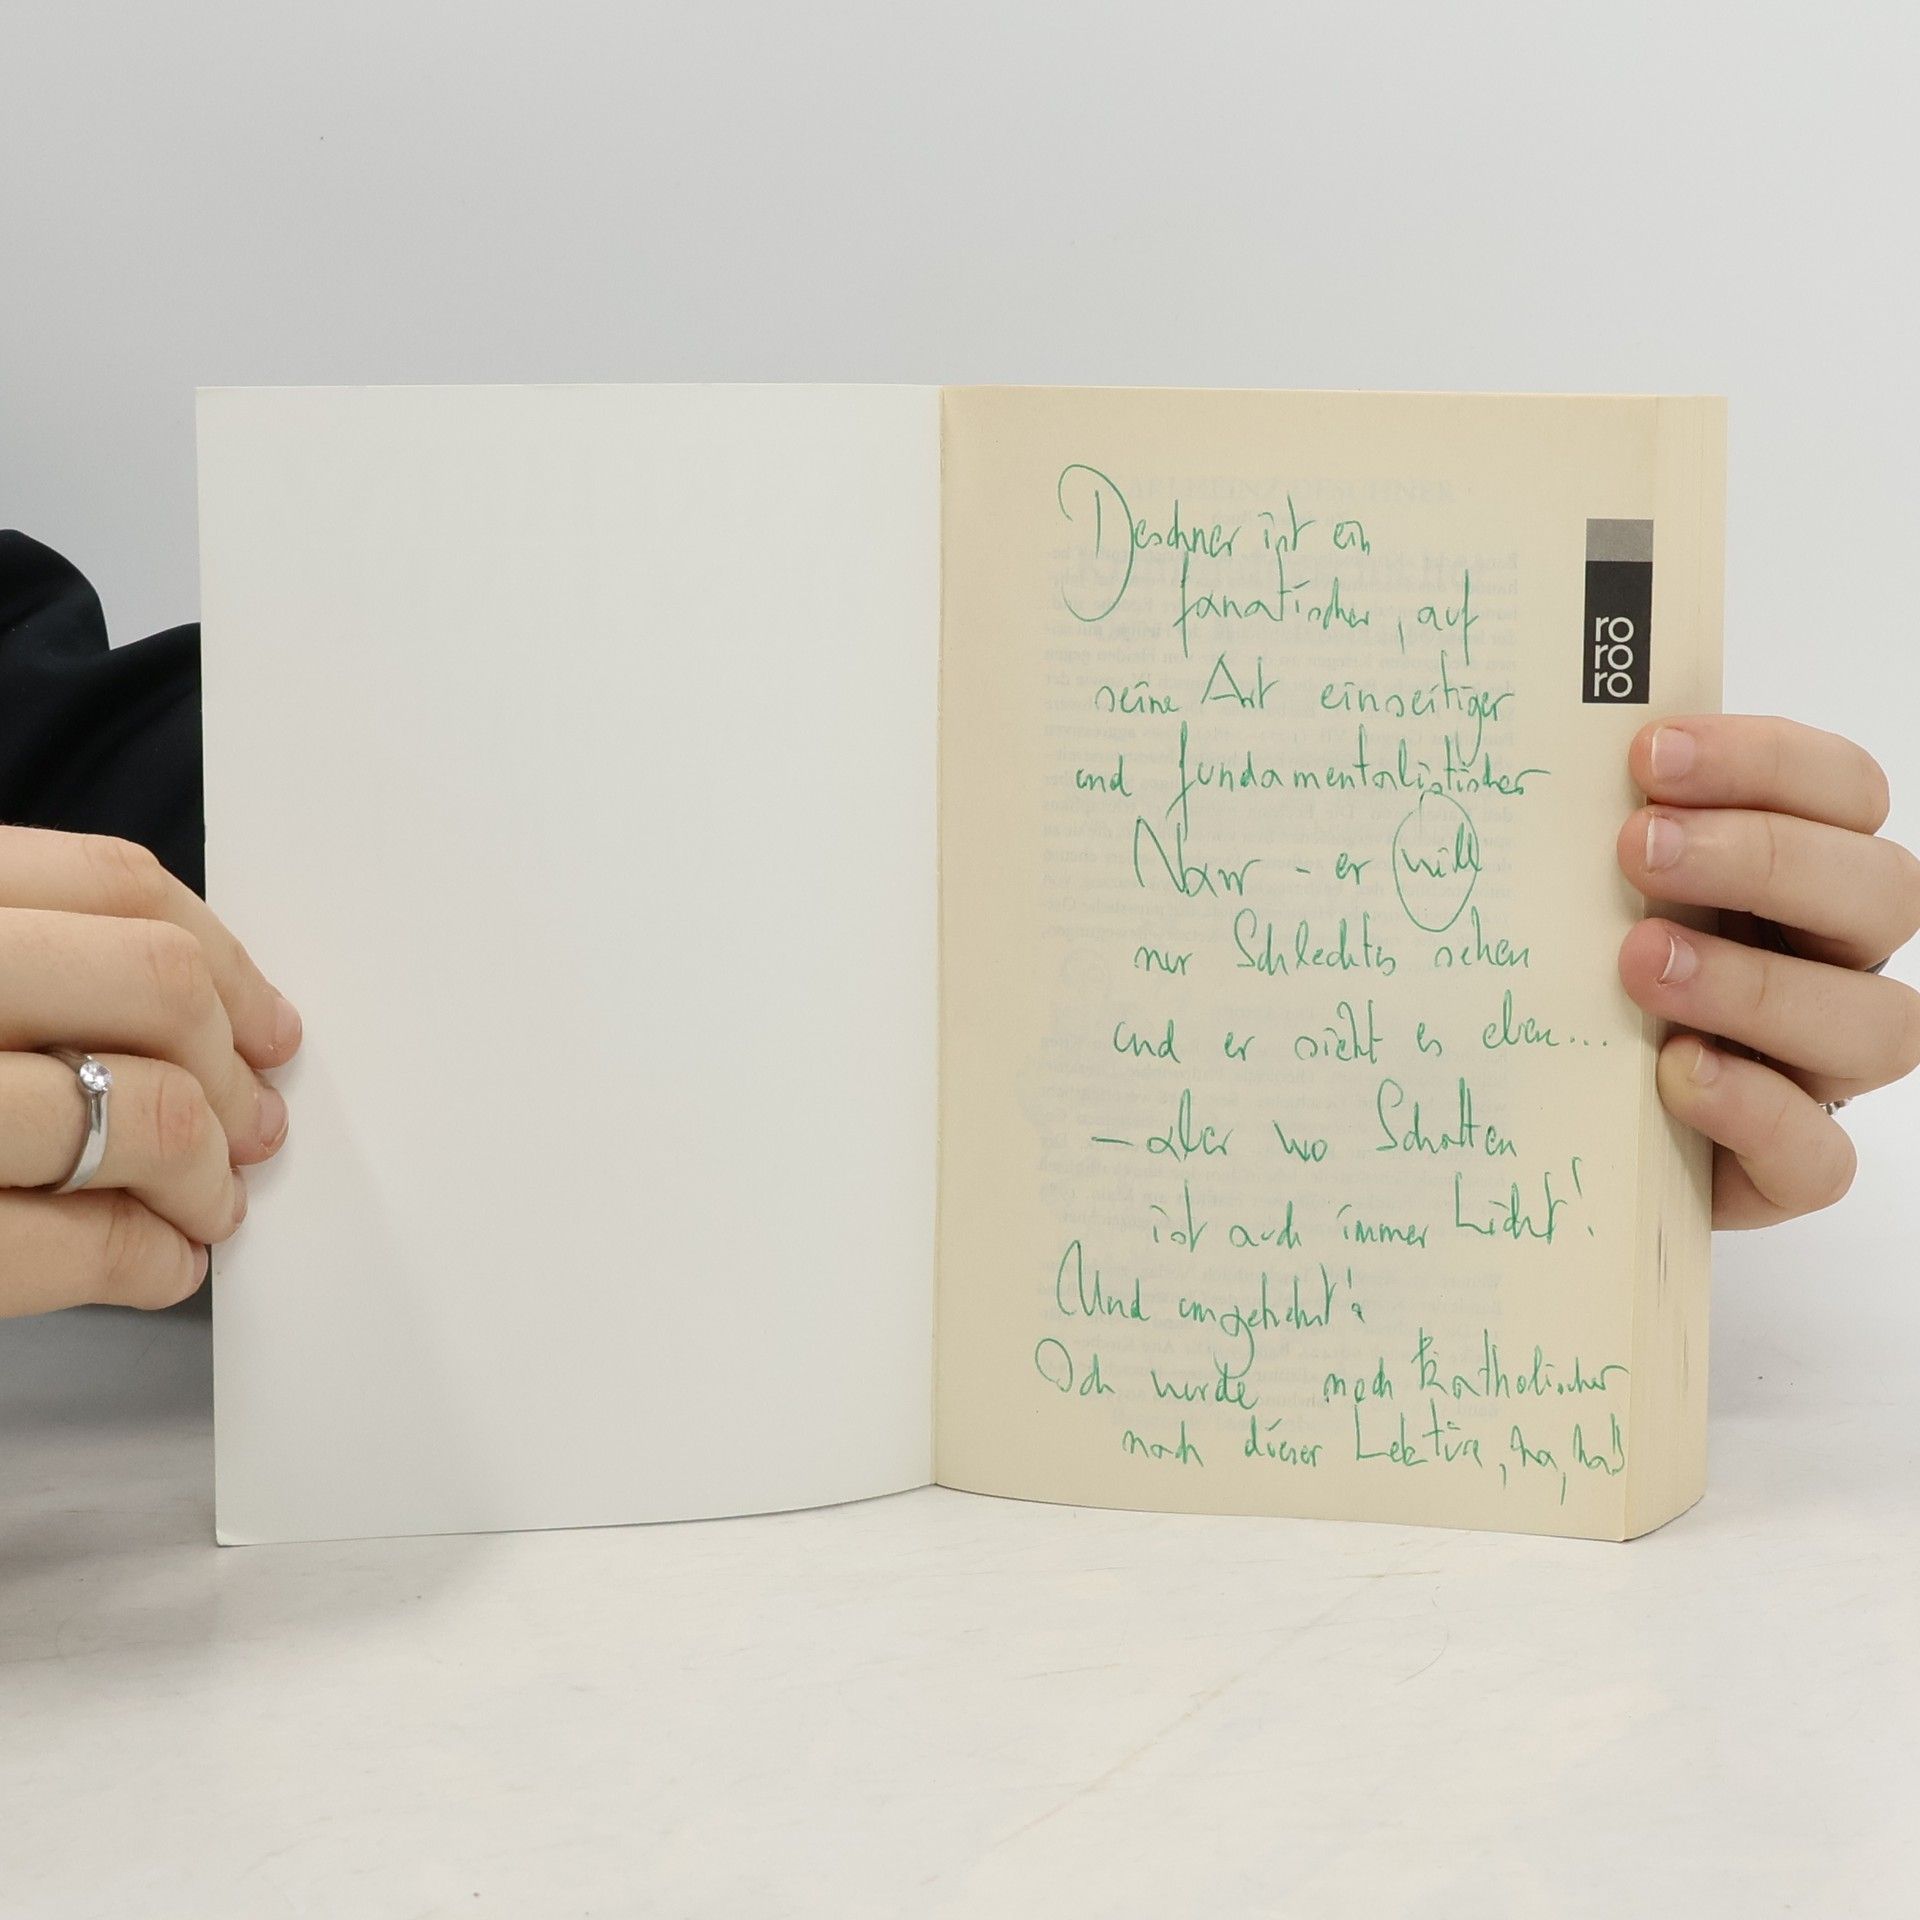 Deschner ist ein
fanatischer, auf
seine Art einseitiger
und fundamentalistischer
Narr - er will
nur Schlechtes sehen
und er sieht es eben...
- aber wo Schatten
ist auch immer Licht!
Und umgekehrt!
Ich wurde noch Katholischer
nach dieser Lektüre, ha, ha!!
ro
ro
ro